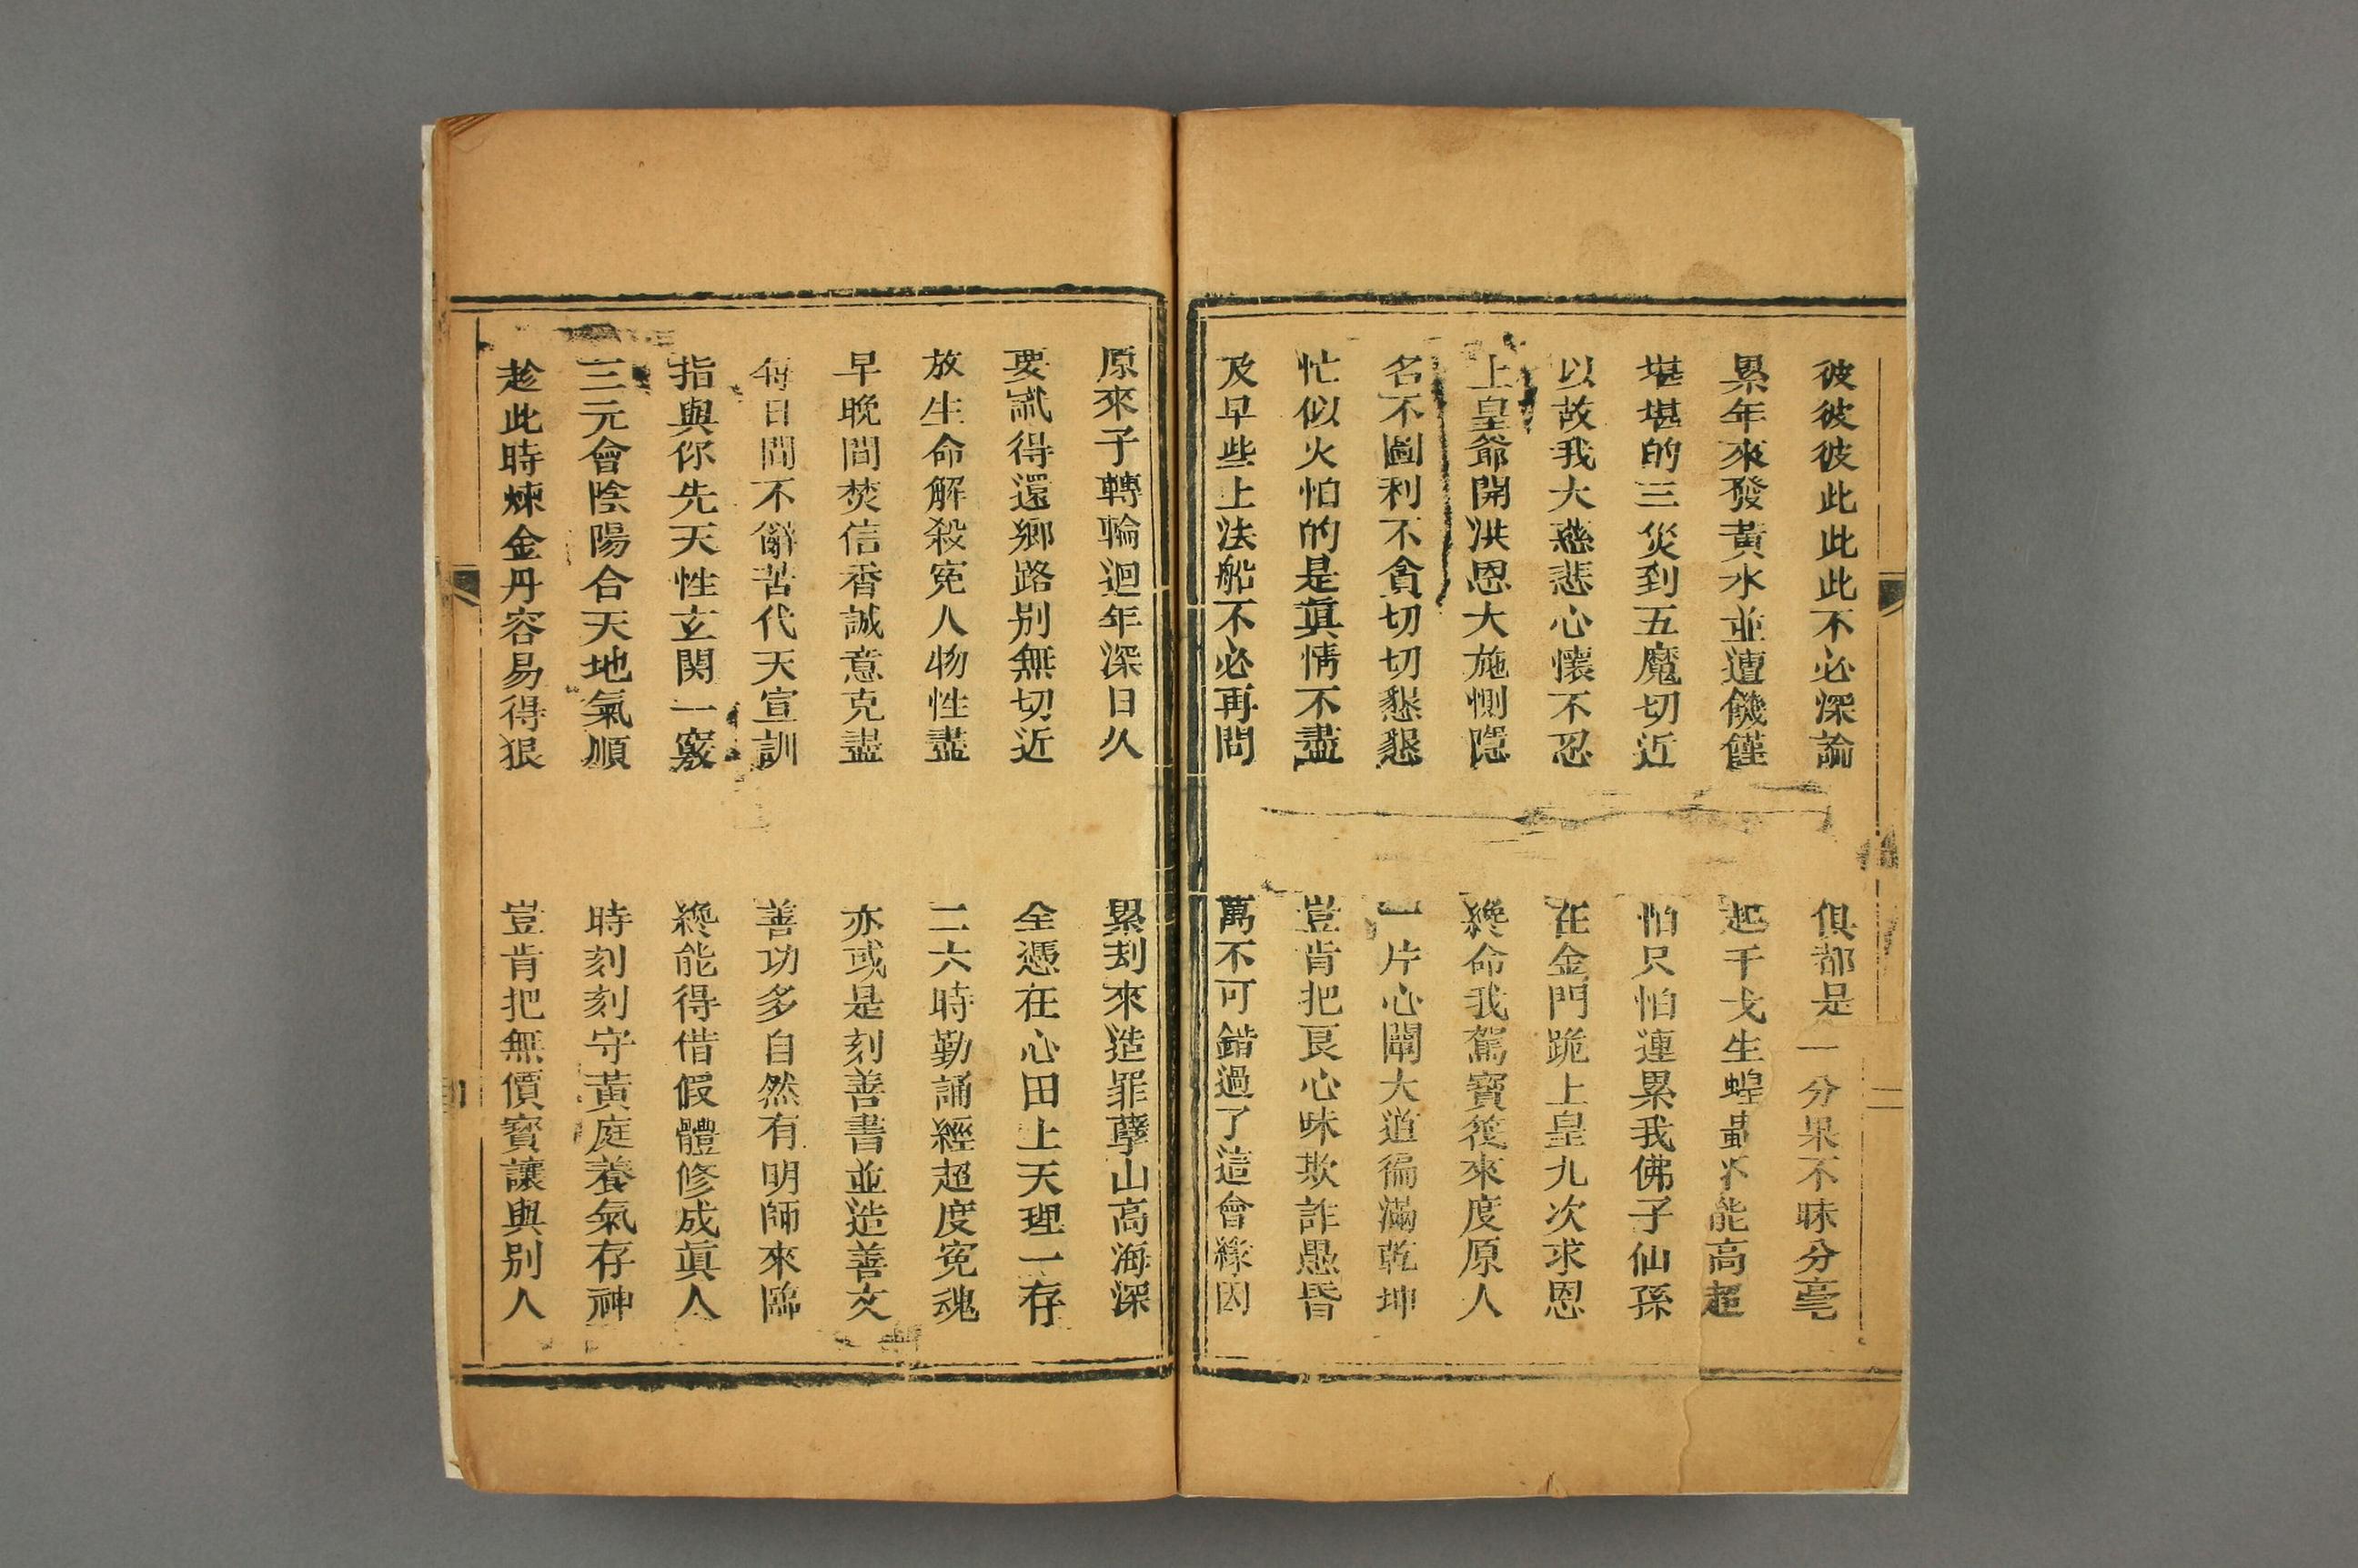 彼彼彼此此此不必深論　俱都是一分果不昧分毫
累年來發黃水並遭饑饉　起干戈生蝗蟲不能高超
堪堪的三災到五魔切近　怕只怕連累我佛子仙孫
以故我大慈悲心懷不忍　在金門跪上皇九次求恩
上皇爺開洪恩大施惻隱　終命我駕寶筏來度原人
名不圖利不貪切切懇懇　一片心闡大道徧滿乾坤
忙似火怕的是眞情不盡　豈肯把良心昧欺詐愚昏
及早些上法船不必再問　萬不可錯過了這會緣因
原來子轉輪迴年深日久　累刦來造罪孽山高海深
要識得還鄉路別無切近　全憑在心田上天理一存
放生命解殺寃人物性盡　二六時勤誦經超度寃魂
早晚間焚信香誠意克盡　亦或是刻善書並造善文
每日間不辭苦代天宣訓　善功多自然有明師來臨
指與你先天性玄関一竅　終能得借假體修成眞人
三元會陰陽合天地氣順　時刻刻守黃庭養氣存神
趁此時煉金丹容易得狠　豈肯把無價寳讓與别人